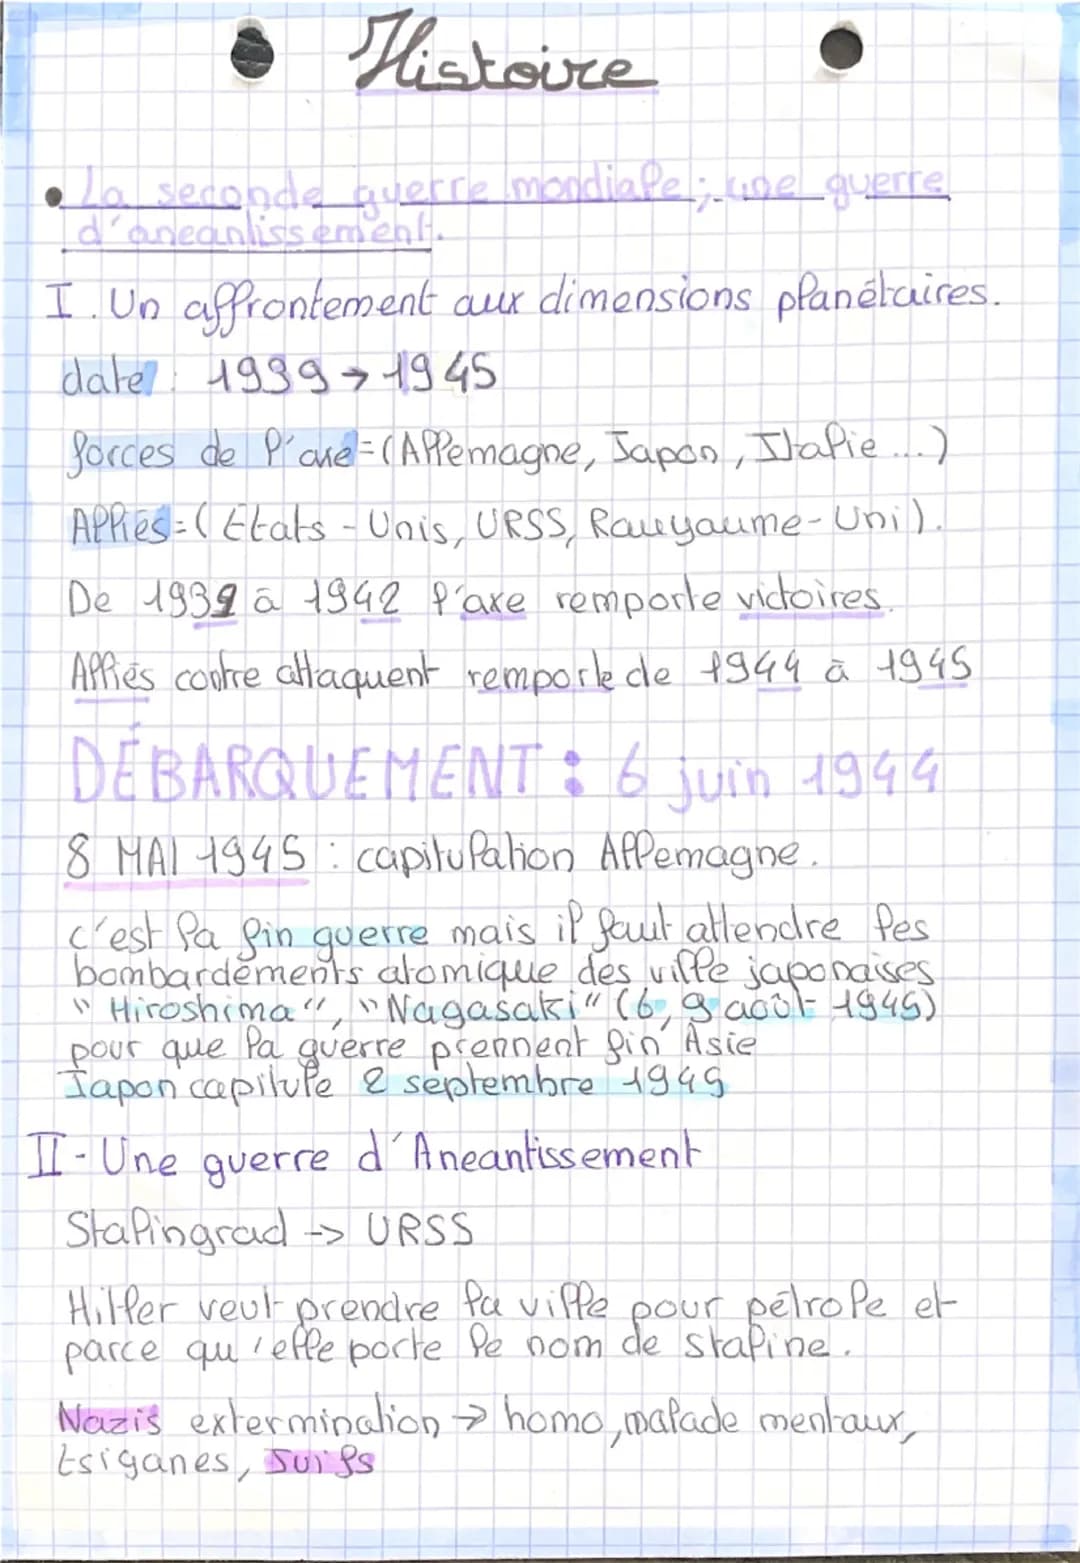 Histoire
• La seconde guerre mondiale ; une guerre
d'aneantissement.
I. Un affrontement aux dimensions planétaires.
date : 1939 → 1945
forces de l'axe = (Allemagne, Japon, Italie ...)
Alliés = ( Etats - Unis, URSS, Rauyaume - Uni ).
De 1939 à 1942 l'axe remporte victoires.
Alliés contre attaquent remporte de 1944 à 1945
DÉBARQUEMENT : 6 juin 1944
8 MAI 1945 : capitulation Allemagne.
c'est la fin guerre mais il faut attendre les
bombardements atomique des ville japonaises
" Hiroshima ", " Nagasaki " (6, 9 août 1945)
pour que la guerre prennent fin Asie
Japon capitule 2 septembre 1945
II - Une guerre d'Aneantissement
Stalingrad -> URSS
Hitler veut prendre la ville pour pétrole et
parce qu'elle porte le nom de staline.
Nazis extermination → homo, malade mentaux,
tsiganes, Juifs